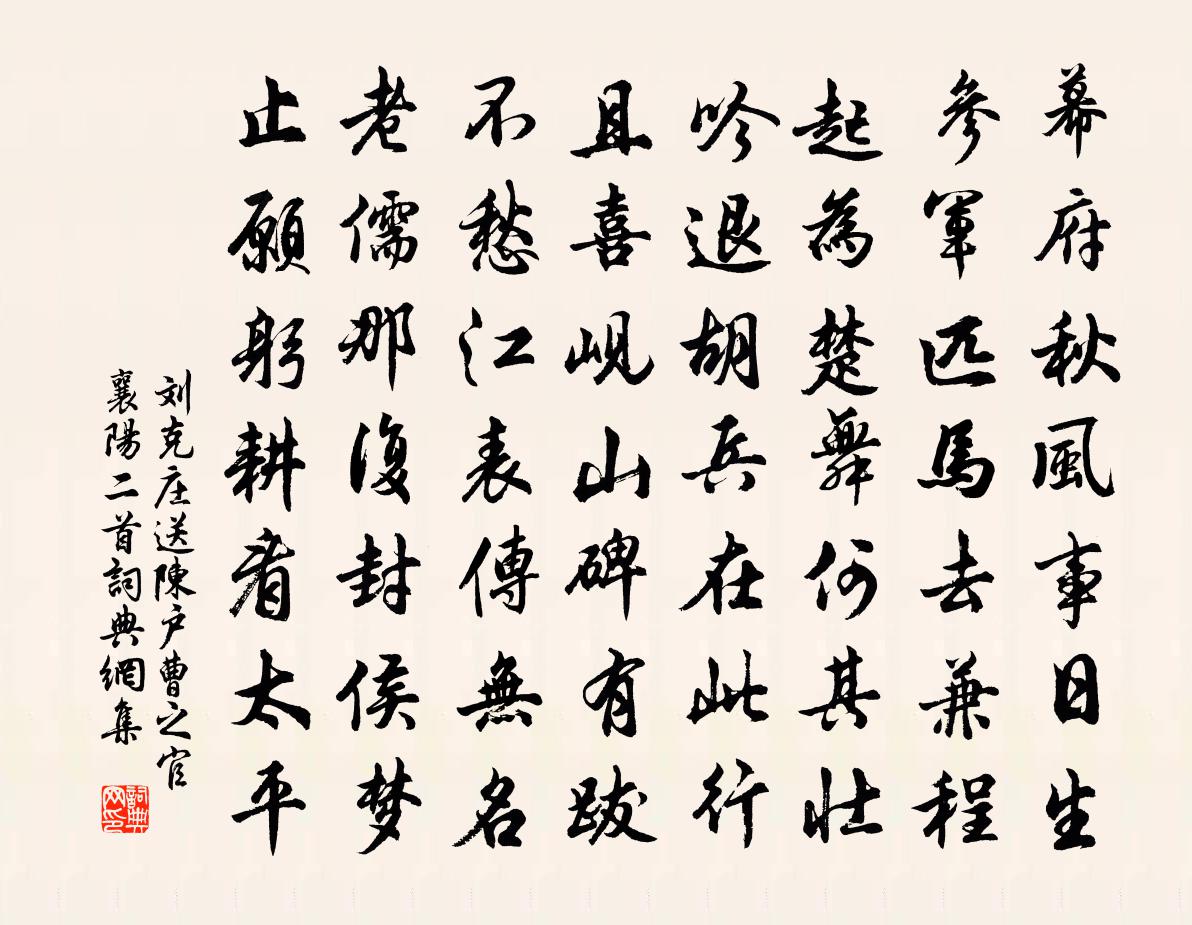 幕府秋風事日生
參軍匹馬去兼程
起為楚舞何其壯
吟退胡兵在此行
且喜峴山碑有跋
不愁江表傳無名
老儒那復封侯夢
止願躬耕看太平
刘克庄送陳户曹之官
襄陽二首詞典網集
詞典网印